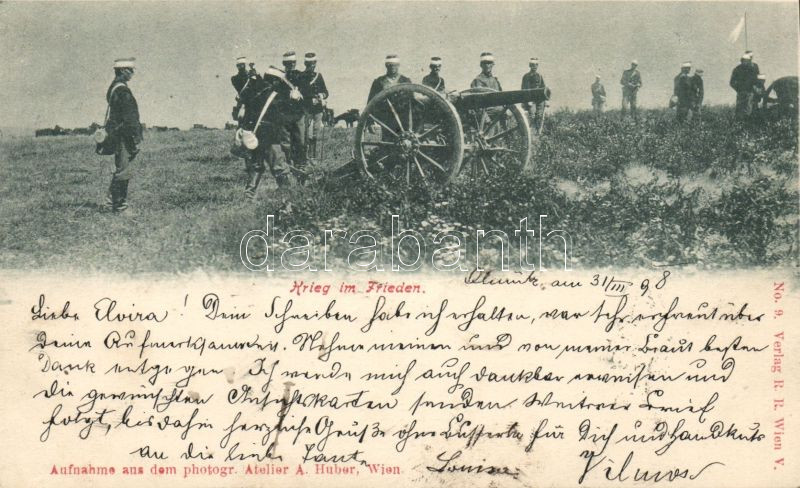 darabanth
Krieg im Frieden.
Olmütz am 31/III 98
Liebe Elvira! Dein Schreiben habe ich erhalten, war sehr erfreut über
Deine Aufmerksamkeit. Nehme meinen und von meiner Braut besten
Dank entgegen. Ich werde mich auch dankbar erweisen und
die gewünschten Ansichtskarten senden. Weiterer Brief
folgt, bis dahin herzliche Grüße ohne für Dich und Handkuss
an die liebe Tant
Louise
Vilmos
Aufnahme aus dem photogr. Atelier A. Huber, Wien.
No. 9. Verlag R. R. Wien V.